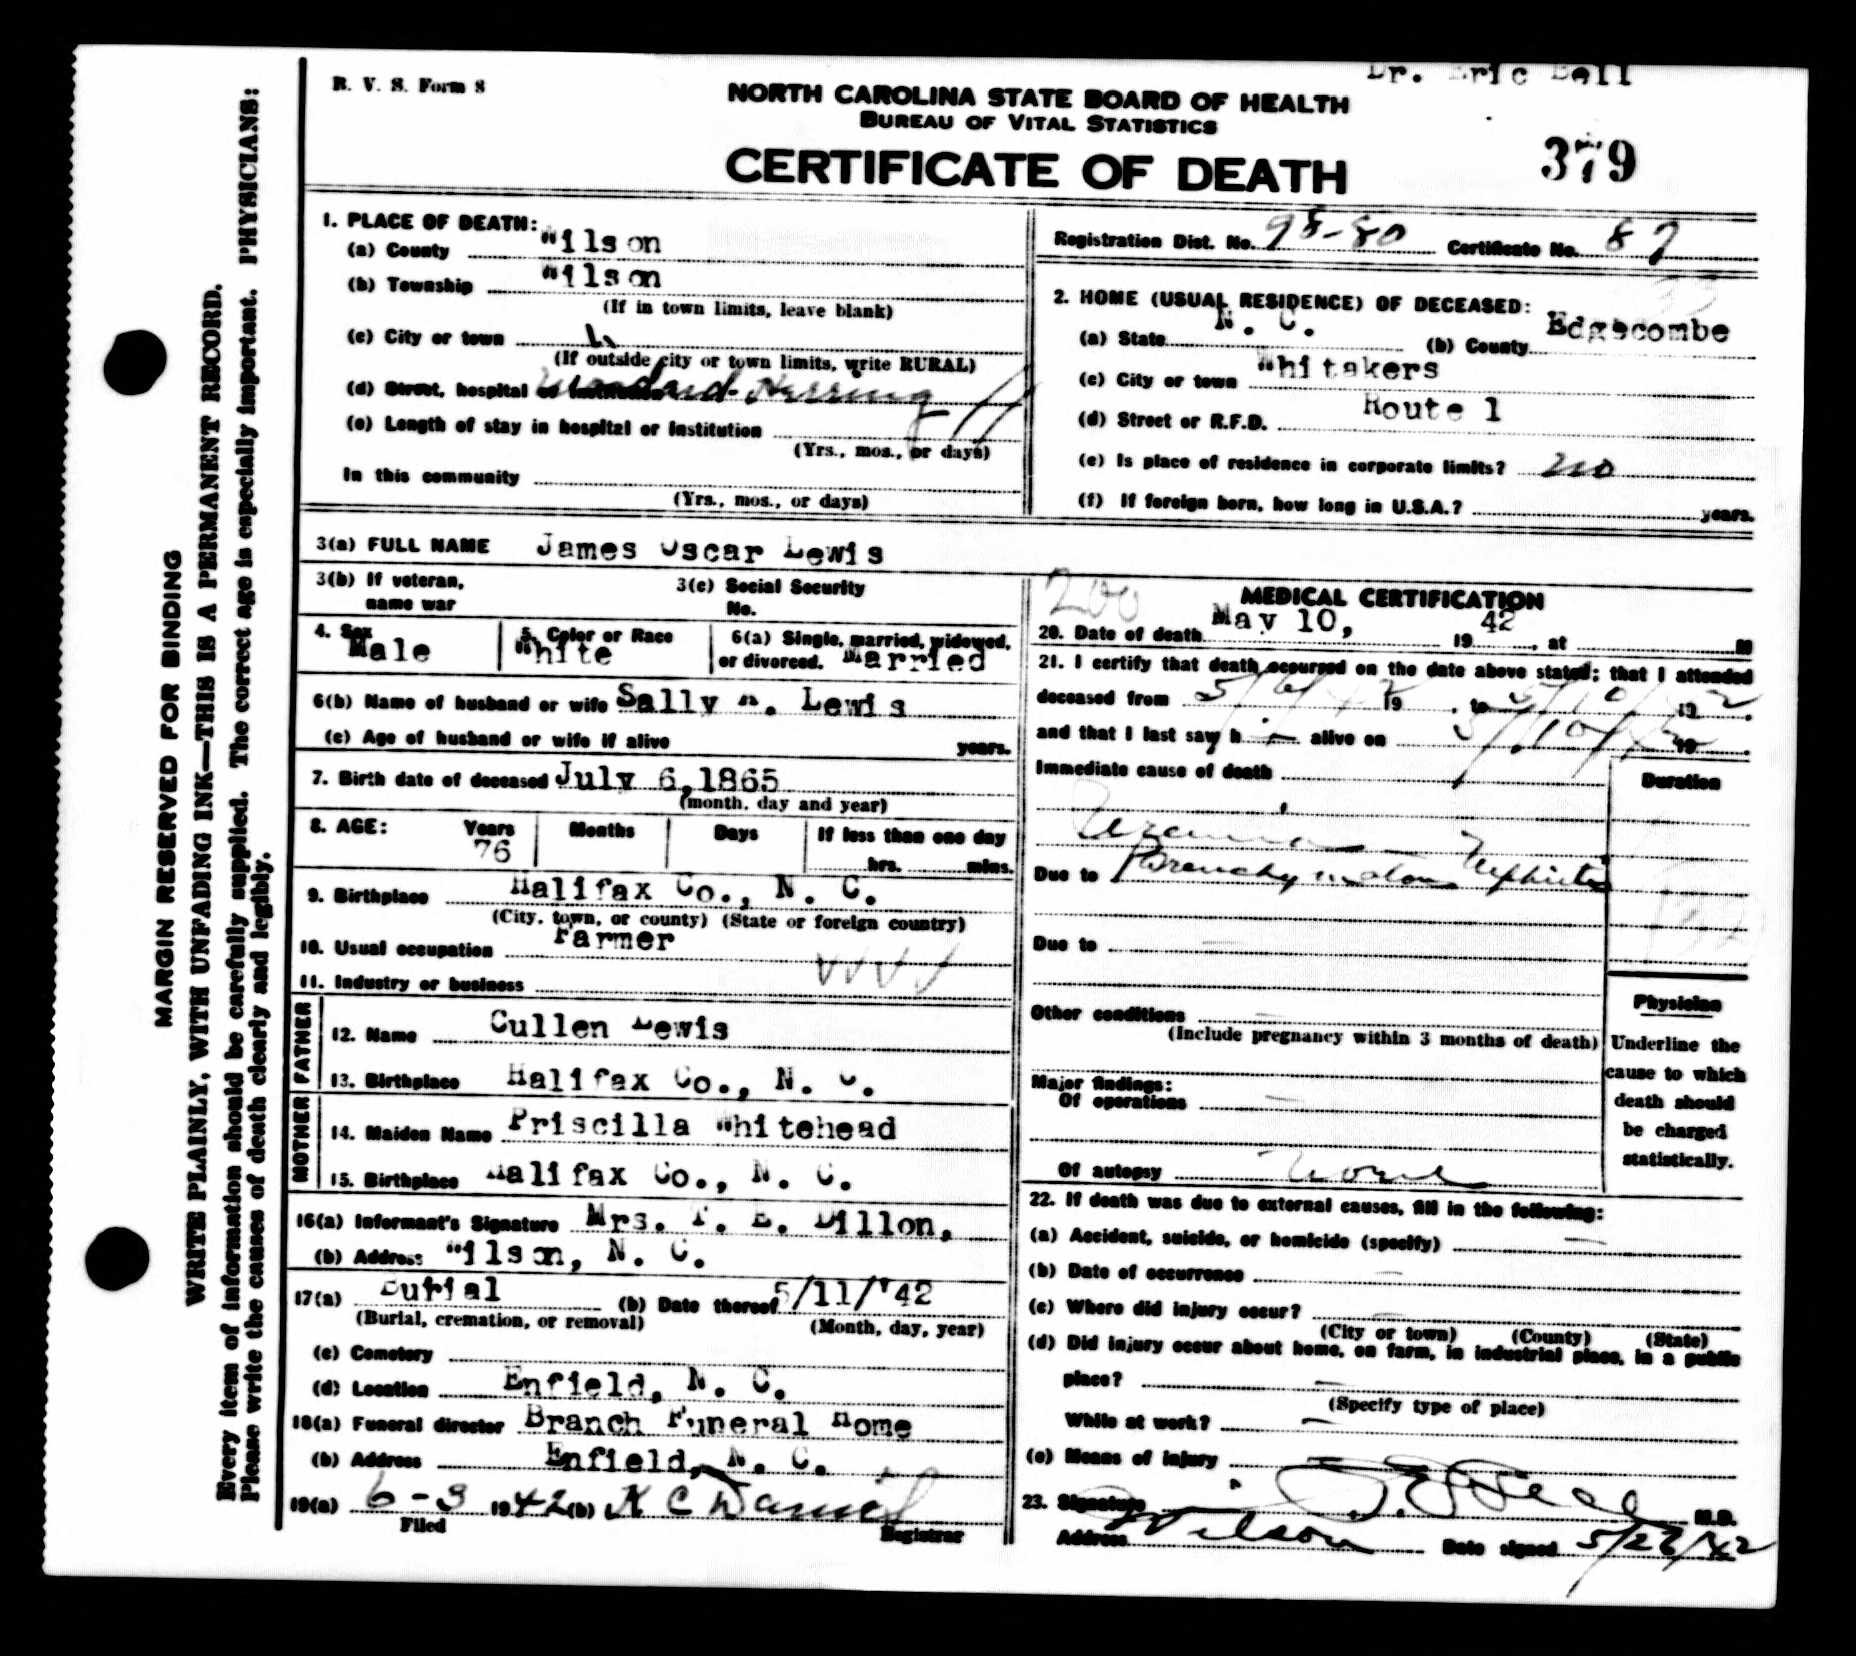 Dr. Eric Bell
R. V. S. Form 8
NORTH CAROLINA STATE BOARD OF HEALTH
BUREAU OF VITAL STATISTICS
CERTIFICATE OF DEATH
379
MARGIN RESERVED FOR BINDING
WRITE PLAINLY, WITH UNFADING INK—THIS IS A PERMANENT RECORD.
Every item of information should be carefully supplied. The correct age is especially important. PHYSICIANS:
Please write the causes of death clearly and legibly.
1. PLACE OF DEATH:
(a) County Wilson
(b) Township Wilson
(If in town limits, leave blank)
(c) City or town
(If outside city or town limits, write RURAL)
(d) Street, hospital or institution Woodard-Herring
(e) Length of stay in hospital or institution
(Yrs., mos., or days)
In this community
(Yrs., mos., or days)
Registration Dist. No. 98-80 Certificate No. 87
2. HOME (USUAL RESIDENCE) OF DECEASED:
(a) State N. C. (b) County Edgecombe
(c) City or town Whitakers
(d) Street or R.F.D. Route 1
(e) Is place of residence in corporate limits? no
(f) If foreign born, how long in U.S.A.? years.
3(a) FULL NAME James Oscar Lewis
3(b) If veteran, name war
3(c) Social Security No.
4. Sex Male
5. Color or Race White
6(a) Single, married, widowed, or divorced. Married
6(b) Name of husband or wife Sally M. Lewis
(c) Age of husband or wife if alive years.
7. Birth date of deceased July 6, 1865
(month, day and year)
8. AGE: Years 76 Months Days If less than one day
hrs. mins.
9. Birthplace Halifax Co., N. C.
(City, town, or county) (State or foreign country)
10. Usual occupation Farmer
11. Industry or business
FATHER
12. Name Cullen Lewis
13. Birthplace Halifax Co., N. C.
MOTHER
14. Maiden Name Priscilla Whitehead
15. Birthplace Halifax Co., N. C.
16(a) Informant's Signature Mrs. T. E. Dillon,
(b) Address Wilson, N. C.
17(a) Burial (b) Date thereof 5/11/'42
(Burial, cremation, or removal) (Month, day, year)
(c) Cemetery
(d) Location Enfield, N. C.
18(a) Funeral director Branch Funeral Home
(b) Address Enfield, N. C.
19(a) 6-3 1942 (b) K C Daniel
Filed Registrar
200
MEDICAL CERTIFICATION
20. Date of death May 10, 1942, at M
21. I certify that death occurred on the date above stated; that I attended
deceased from 5/6/42 19 , to 5/10/42 19 .
and that I last saw h alive on 5/10/42 19 .
Immediate cause of death Duration
Uremia
Due to Parenchymatous Nephritis
Due to —
Other conditions —
(Include pregnancy within 3 months of death)
Major findings:
Of operations —
Of autopsy None
Physician
Underline the
cause to which
death should
be charged
statistically.
22. If death was due to external causes, fill in the following:
(a) Accident, suicide, or homicide (specify) —
(b) Date of occurrence —
(c) Where did injury occur? —
(City or town) (County) (State)
(d) Did injury occur about home, on farm, in industrial place, in a public
place? —
(Specify type of place)
While at work? —
(e) Means of injury —
23. Signature Bell M.D.
Address Wilson Date signed 5/27/42